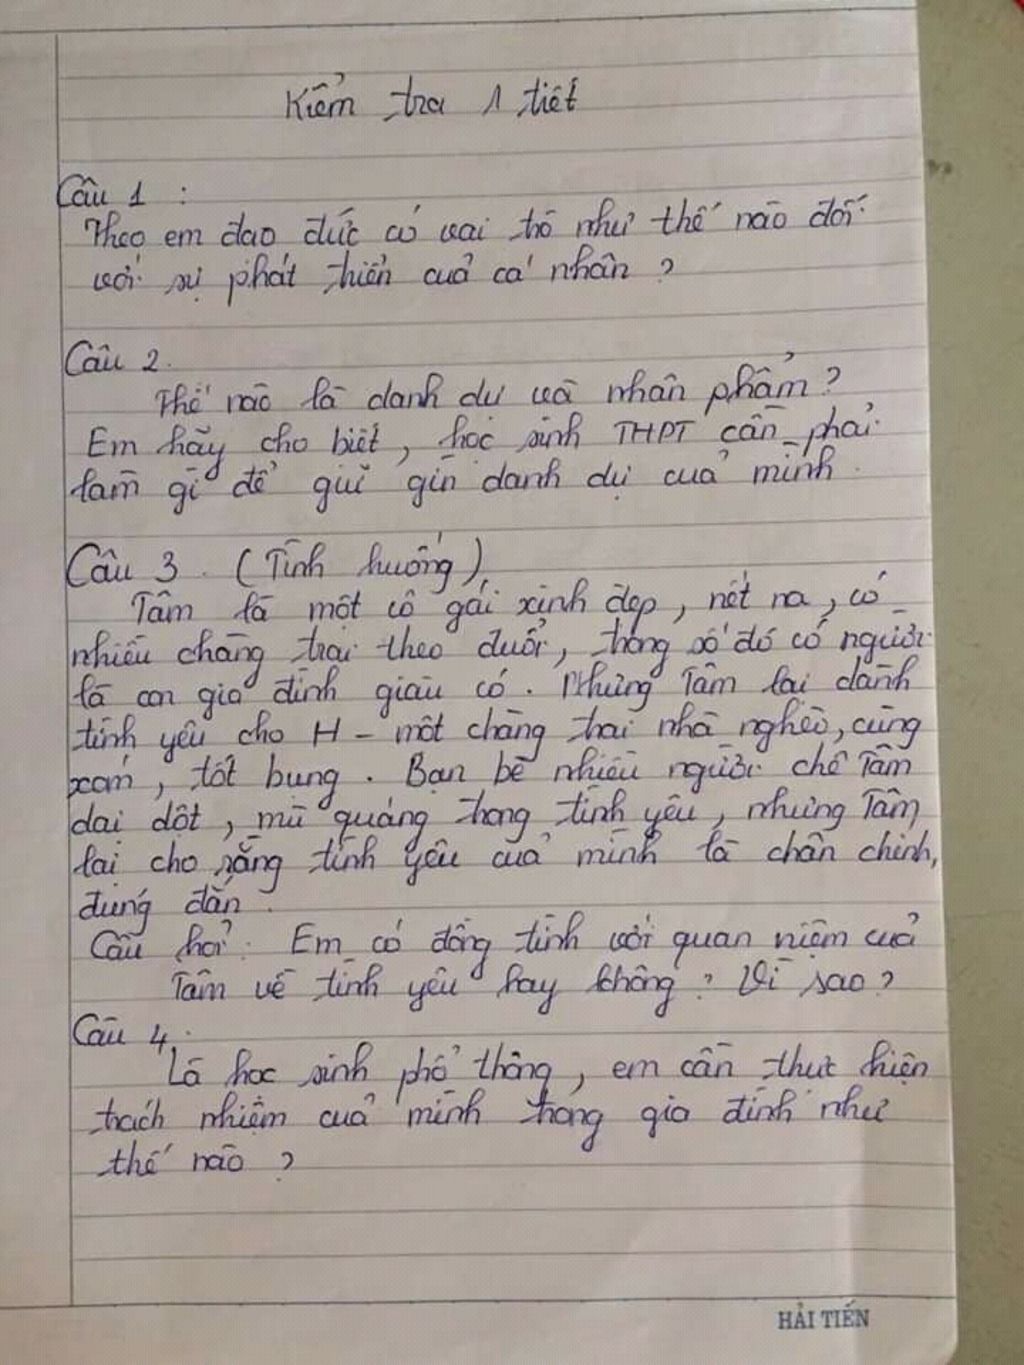 Kiểm tra 1 tiết
Câu 1 :
Theo em đạo đức có vai trò như thế nào đối
với sự phát triển của cá nhân ?
Câu 2.
Thế nào là danh dự và nhân phẩm ?
Em hãy cho biết , học sinh THPT cần phải
làm gì để giữ gìn danh dự của mình .
Câu 3 . ( Tình huống )
Tâm là một cô gái xinh đẹp , nết na , có
nhiều chàng trai theo đuổi , trong số đó có người
là con gia đình giàu có . Nhưng Tâm lại dành
tình yêu cho H - một chàng trai nhà nghèo, cùng
xóm , tốt bụng . Bạn bè nhiều người chê Tâm
dại dột , mù quáng trong tình yêu , nhưng Tâm
lại cho rằng tình yêu của mình là chân chính,
đúng đắn .
Câu hỏi : Em có đồng tình với quan niệm của
Tâm về tình yêu hay không ? Vì sao ?
Câu 4.
Là học sinh phổ thông , em cần thực hiện
trách nhiệm của mình trong gia đình như
thế nào ?
HẢI TIẾN